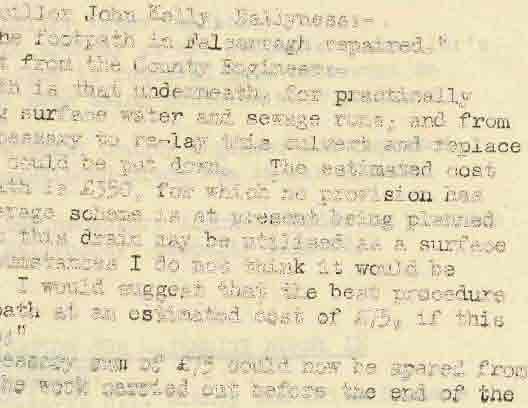 cillor John Kelly, Ballyness:-
he footpath in Falcarragh repaired."
t from the County Engineer:
th is that underneath, for practically
surface water and sewage runs, and from
cessary to re-lay this culvert and replace
could be put down. The estimated cost
ath is £350, for which no provision has
erage scheme is at present being planned
t this drain may be utilised as a surface
cumstances I do not think it would be
I would suggest that the best procedure
path at an estimated cost of £75, if this
d"
cessary sum of £75 could now be spared from
he work carried out before the end of the